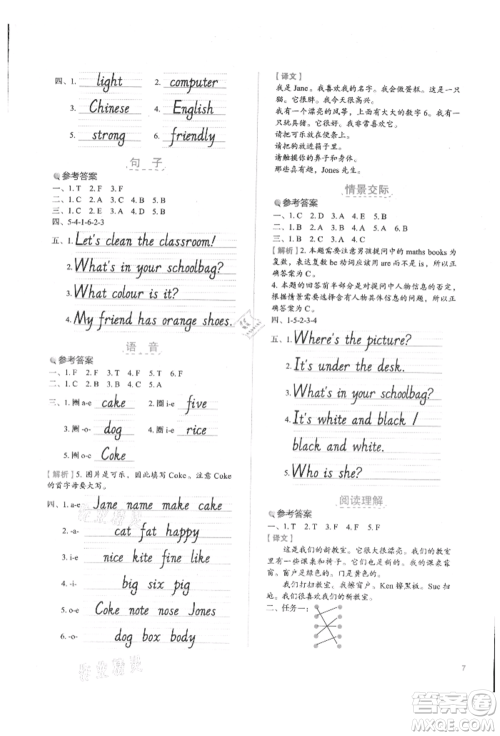 四、1. light 2. computer
3. Chinese 4. English
5. strong 6. friendly
句 子
参考答案
一、1. T 2. F 3. F
二、1. C 2. A 3. C 4. B
三、1. C 2. C 3. A
四、5-4-1-6-2-3
五、1. Let's clean the classroom!
2. What's in your schoolbag?
3. What colour is it?
4. My friend has orange shoes.
语 音
参考答案
一、1. F 2. T 3. F 4. T
二、1. C 2. B 3. A 4. B 5. C
三、1. 圈 a-e cake 2. 圈 i-e five
3. 圈 -o- dog 4. 圈 i-e rice
5. 圈 o-e Coke
[解析] 5. 图片是可乐，所以填写 Coke，注意 Coke
的首字母要大写。
四、1. a-e Jane name make cake
2. -a- cat fat happy
3. i-e nice kite fine like
4. -i- big six pig
5. o-e Coke note nose Jones
6. -o- dog box body
[译文]
我是 Jane。我喜欢我的名字。我会做蛋糕。这是一只
猫。它很胖。我今天很高兴。
我有一个漂亮的风筝，上面有大大的数字 6。我喜欢
我的玩具猪。它很可爱。
请把可乐放在便条上。
请把狗放进箱子里。
请触摸你的鼻子和身体。
那些很漂亮，Jones 先生。
情景交际
参考答案
一、1. T 2. T 3. F
二、1. C 2. B 3. A 4. A
三、1. B 2. C 3. A 4. C
[解析] 2. 本题需要注意男孩提问中的 maths books 为
复数，根据 be 动词应该用 are 而不是 is，所以正
确答案为 C。
4. 本题的回答前半部分是对于人物信息的否定，后半
部分是对于人物信息的肯定，所以正确答案为 C。
四、1-5-2-3-4
五、1. Where's the picture?
2. It's under the desk.
3. It's white and black /
black and white.
5. Who is she?
阅读理解
参考答案
一、1. T 2. T 3. F 4. F 5. F
[译文]
这是我们的新教室。它很大很漂亮。我们的教室里
有一些课桌和椅子。窗户是绿色的。门是黄色的。
我们打扫教室。我擦窗户，Ken 擦黑板，Sue 扫
地。我们喜欢我们的新教室。
二、任务一：
7
答案圈
MXQE.COM